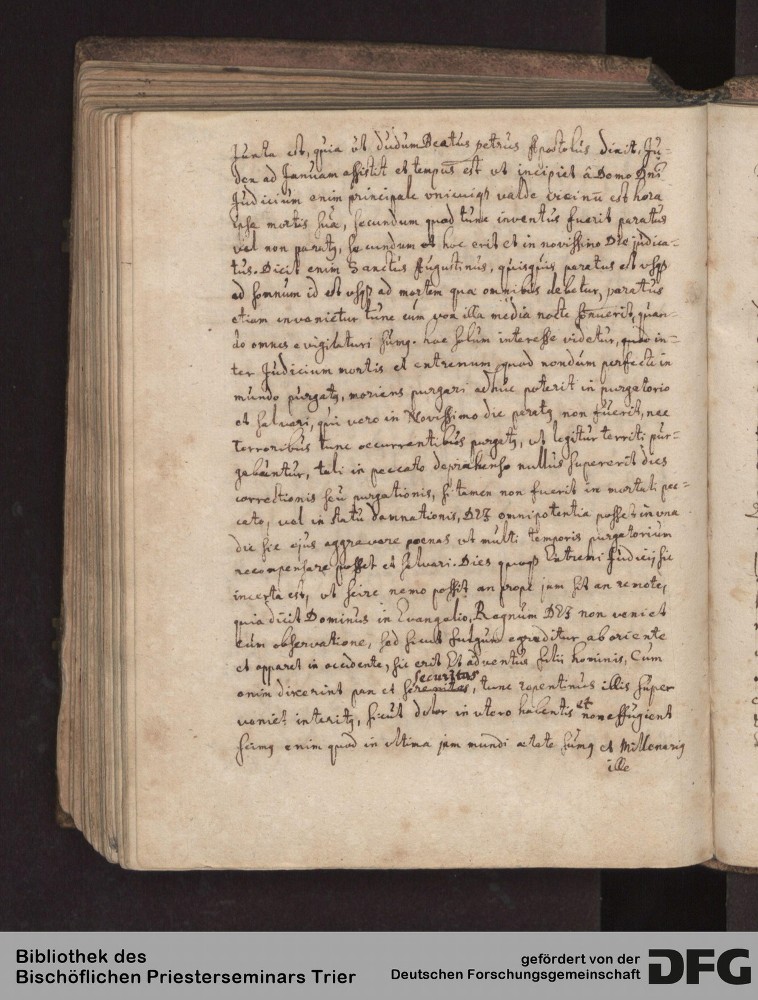 Juxta est, quia ut dudum Beatus petrus Apostolus dixit, Ju=
dex ad Januam assistit et tempus est ut incipiet â Domo Dni
Judicium enim principale unicuiqȝ valde vicinū est hora
ipsa mortis suæ, secundum quod tunc inventus fuerit paratus
vel non paratȝ, secundum et hoc erit et in novissimo Die judica=
tus. Dicit enim Sanctus Augustinus, quisquis paratus est usqȝ
ad somnum id est usqȝ ad mortem qua omnibus debetur, paratus
etiam invenietur tunc cum vox illa media nocte sonuerit, quan=
do omnes evigilaturi sumȝ. hoc solum interesse videtur, quod in=
ter Judicium mortis et extremum, quod nondum perfecte in
mundo purgatȝ, moriens purgari adhuc poterit in purgatorio
et salvari, qui vero in Novissimo die paratȝ non fuerit, nec
Terroribus tunc occurrentibus purgatȝ, ut legitur territi pur=
gabuntur, tali in peccato depræhenso nullus supererit dies
correctionis seu purgationis, si tamen non fuerit in mortali pec=
cato, vel in statu damnationis, DEI omnipotentia posset in una
die sic ejus aggravare poenas ut multi temporis purgatorium
recompensare posset et salvari. Dies quoqȝ Extremi Judicij sic
incerta est, ut scire nemo possit an prope jam sit an remote,
quia dicit Dominus in Evangelio, Regnum DEI non veniet
cum observatione, sed sicut fulgur egreditur ab oriente
et apparet in occidente, sic erit Et adventus filij hominis, Cum
securitas
enim dixerint pax et serenitas, tunc repentinus illis super
veniet interitȝ, sicut dolor in utero habentis et non effugient
scimȝ enim quod in ultima jam mundi ætate sumȝ et Millenariȝ
ille
Bibliothek des
Bischöflichen Priesterseminars Trier
gefördert von der
Deutschen Forschungsgemeinschaft
DFG